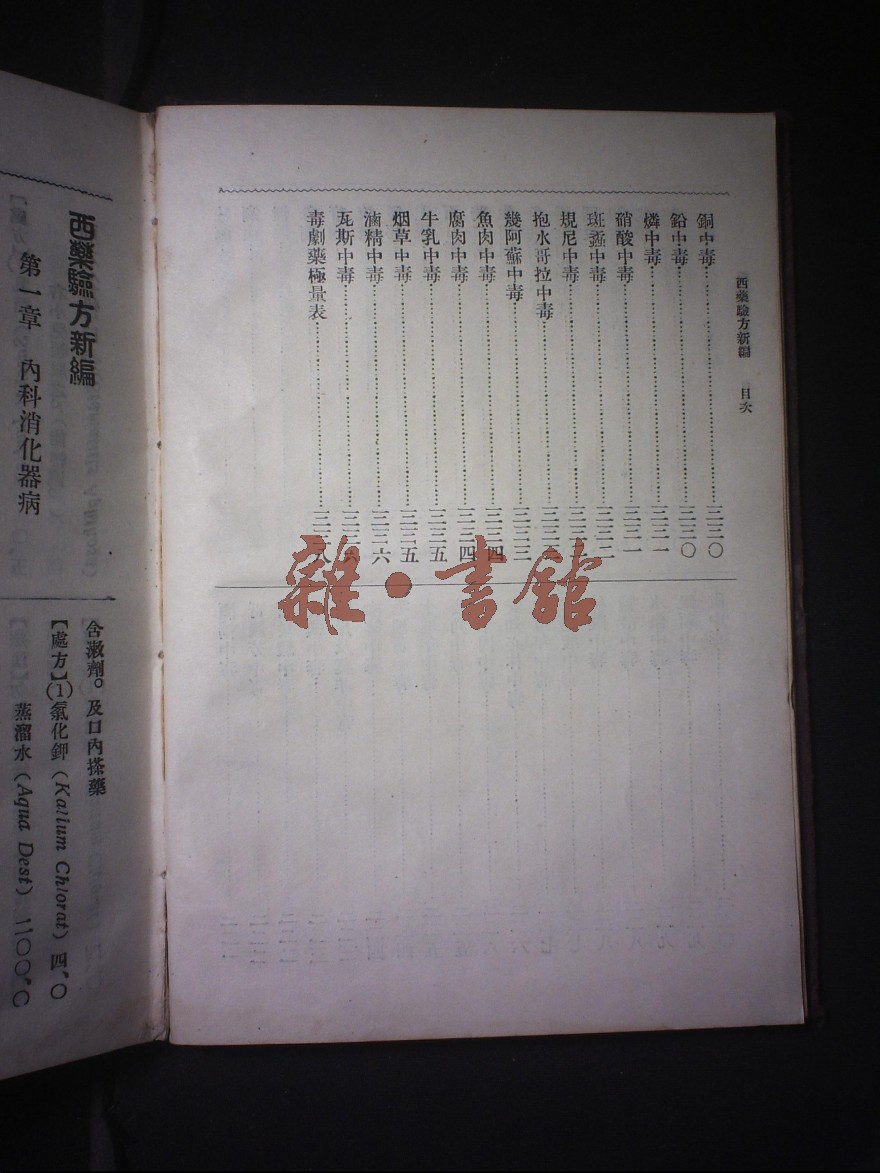 西藥驗方新編 目次
銅中毒……三三〇
鉛中毒……三三〇
燐中毒……三三一
硝酸中毒……三三一
斑蝥中毒……三三二
規尼中毒……三三
抱水哥拉中毒……三三
幾阿蘇中毒……三三三
魚肉中毒……三三四
腐肉中毒……三三四
牛乳中毒……三三五
烟草中毒……三三五
滷精中毒……三三六
瓦斯中毒……三三六
毒劇藥極量表……三三八
西藥驗方新編
第一章 內科消化器病
含漱劑。及口內搽藥
【處方】(1)氯化鉀(Kalium Chlorat) 四.〇
蒸溜水(Aqua Dest)
雜·書館